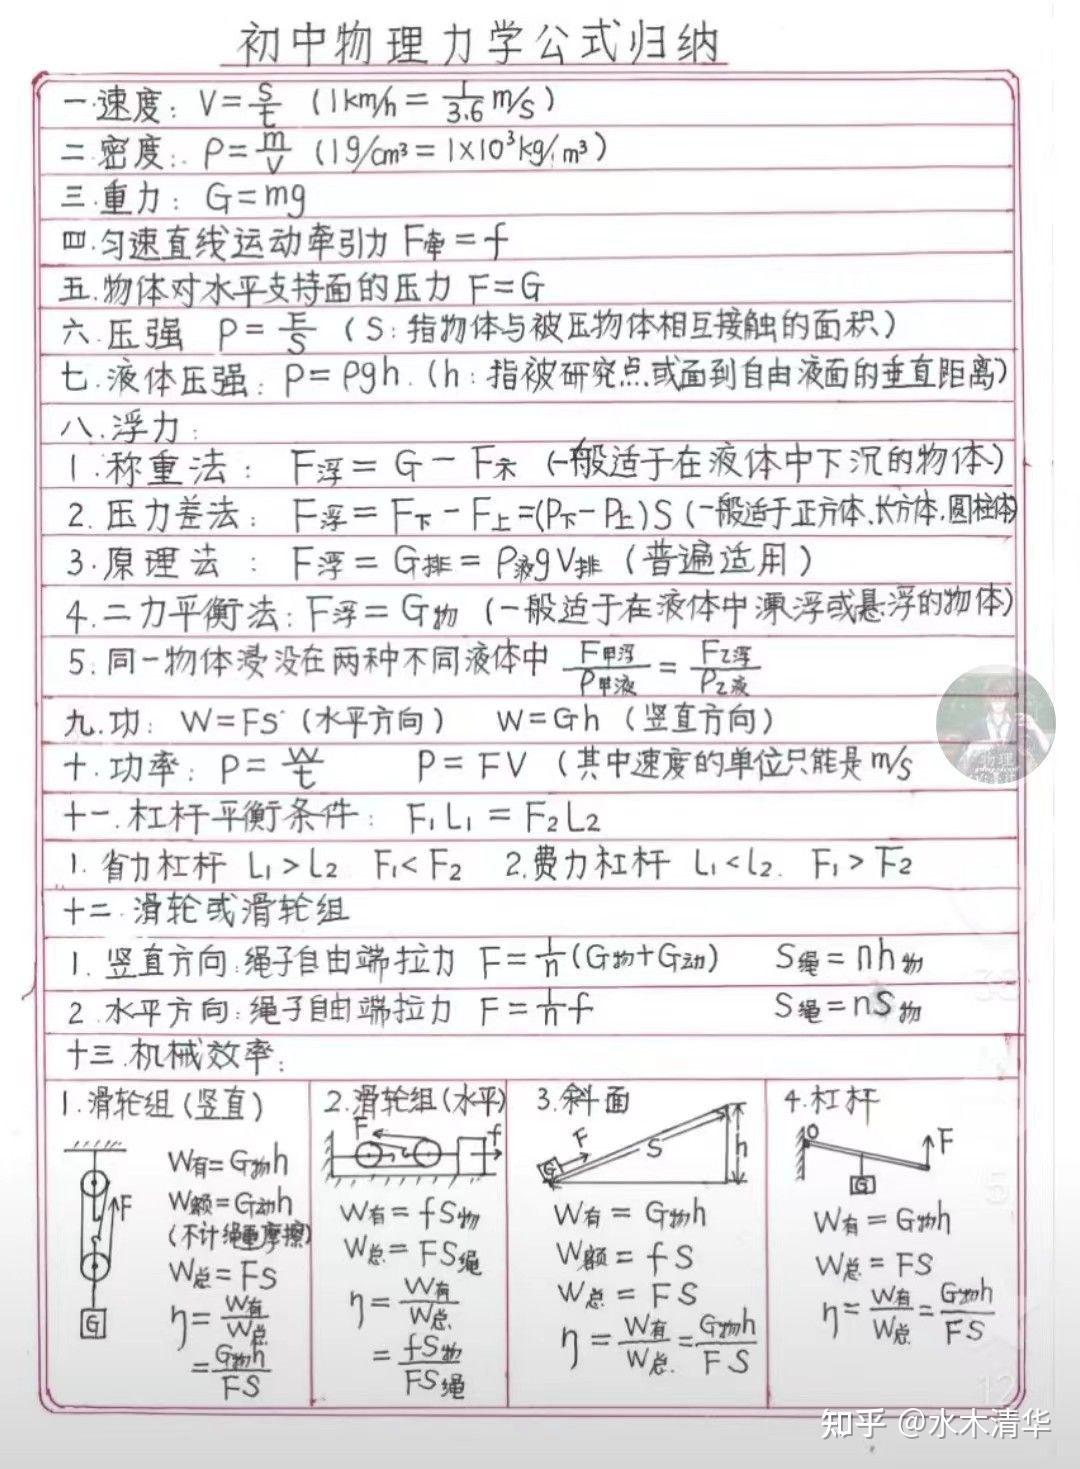 初中物理力学公式归纳
一.速度: V=S/t (1km/h=1/3.6 m/s)
二.密度: ρ=m/V (1g/cm³=1×10³kg/m³)
三.重力: G=mg
四.匀速直线运动牵引力 F牵=f
五.物体对水平支持面的压力 F=G
六.压强 P=F/S (S:指物体与被压物体相互接触的面积)
七.液体压强: P=ρgh.(h:指被研究点或面到自由液面的垂直距离)
八.浮力:
1.称重法: F浮=G-F示 (一般适于在液体中下沉的物体)
2.压力差法: F浮=F下-F上=(P下-P上)S (一般适于正方体、长方体.圆柱体)
3.原理法: F浮=G排=ρ液gV排 (普遍适用)
4.二力平衡法:F浮=G物 (一般适于在液体中漂浮或悬浮的物体)
5.同一物体浸没在两种不同液体中 F甲浮/ρ甲液=F乙浮/ρ乙液
九.功: W=FS (水平方向) W=Gh (竖直方向)
十.功率: P=W/t P=FV (其中速度的单位只能是m/s
十一.杠杆平衡条件: F₁L₁=F₂L₂
1.省力杠杆 L₁>L₂ F₁<F₂ 2.费力杠杆 L₁<L₂. F₁>F₂
十二.滑轮或滑轮组
1.竖直方向:绳子自由端拉力 F=1/n(G物+G动) S绳=nh物
2.水平方向:绳子自由端拉力 F=1/n f S绳=nS物
十三.机械效率:
1.滑轮组(竖直)
F
G
W有=G物h
W额=G动h
(不计绳重摩擦)
W总=FS
η=W有/W总
=G物h/FS
2.滑轮组(水平)
F
f
W有=fS物
W总=FS绳
η=W有/W总
=fS物/FS绳
3.斜面
F
S
h
G
W有=G物h
W额=fS
W总=FS
η=W有/W总=G物h/FS
4.杠杆
O
F
G
W有=G物h
W总=FS
η=W有/W总=G物h/FS
物理
知乎 @水木清华